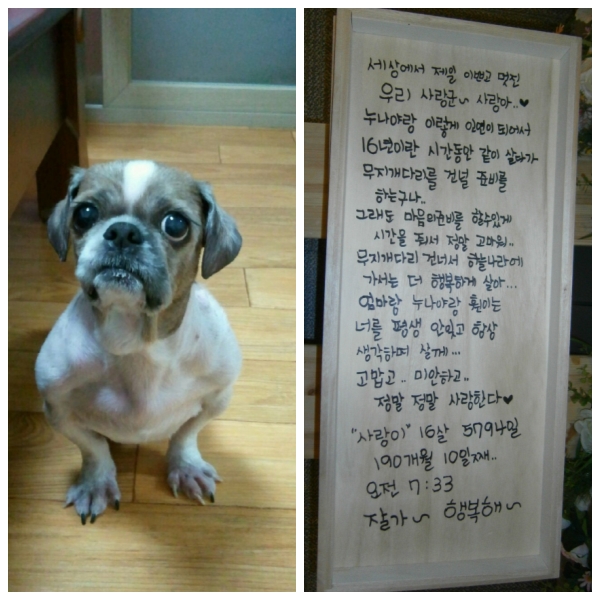 세상에서 제일 이쁘고 멋진
우리 사랑군~ 사랑아..♥
누나야랑 이렇게 인연이 되어서
16년이란 시간동안 같이 살다가
무지개다리를 건널 준비를
하는구나..
그래도 마음의준비를 할수있게
시간을 줘서 정말 고마워..
무지개다리 건너서 하늘나라에
가서는 더 행복하게 살아...
엄마랑 누나야랑 흰이는
너를 평생 안잊고 항상
생각하며 살께...
고맙고.. 미안하고..
정말 정말 사랑한다♥
"사랑이" 16살 5794일
190개월 10일째..
오전 7:33
잘가~ 행복해~